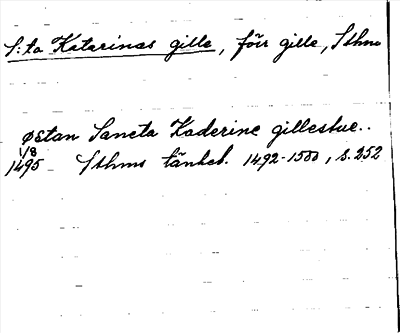 S:ta Katarinas gille, förr gille, Sthm
østan Sancta Kaderine gillestue..
1/8
1495 Sthms tänkeb. 1492-1500, s. 252